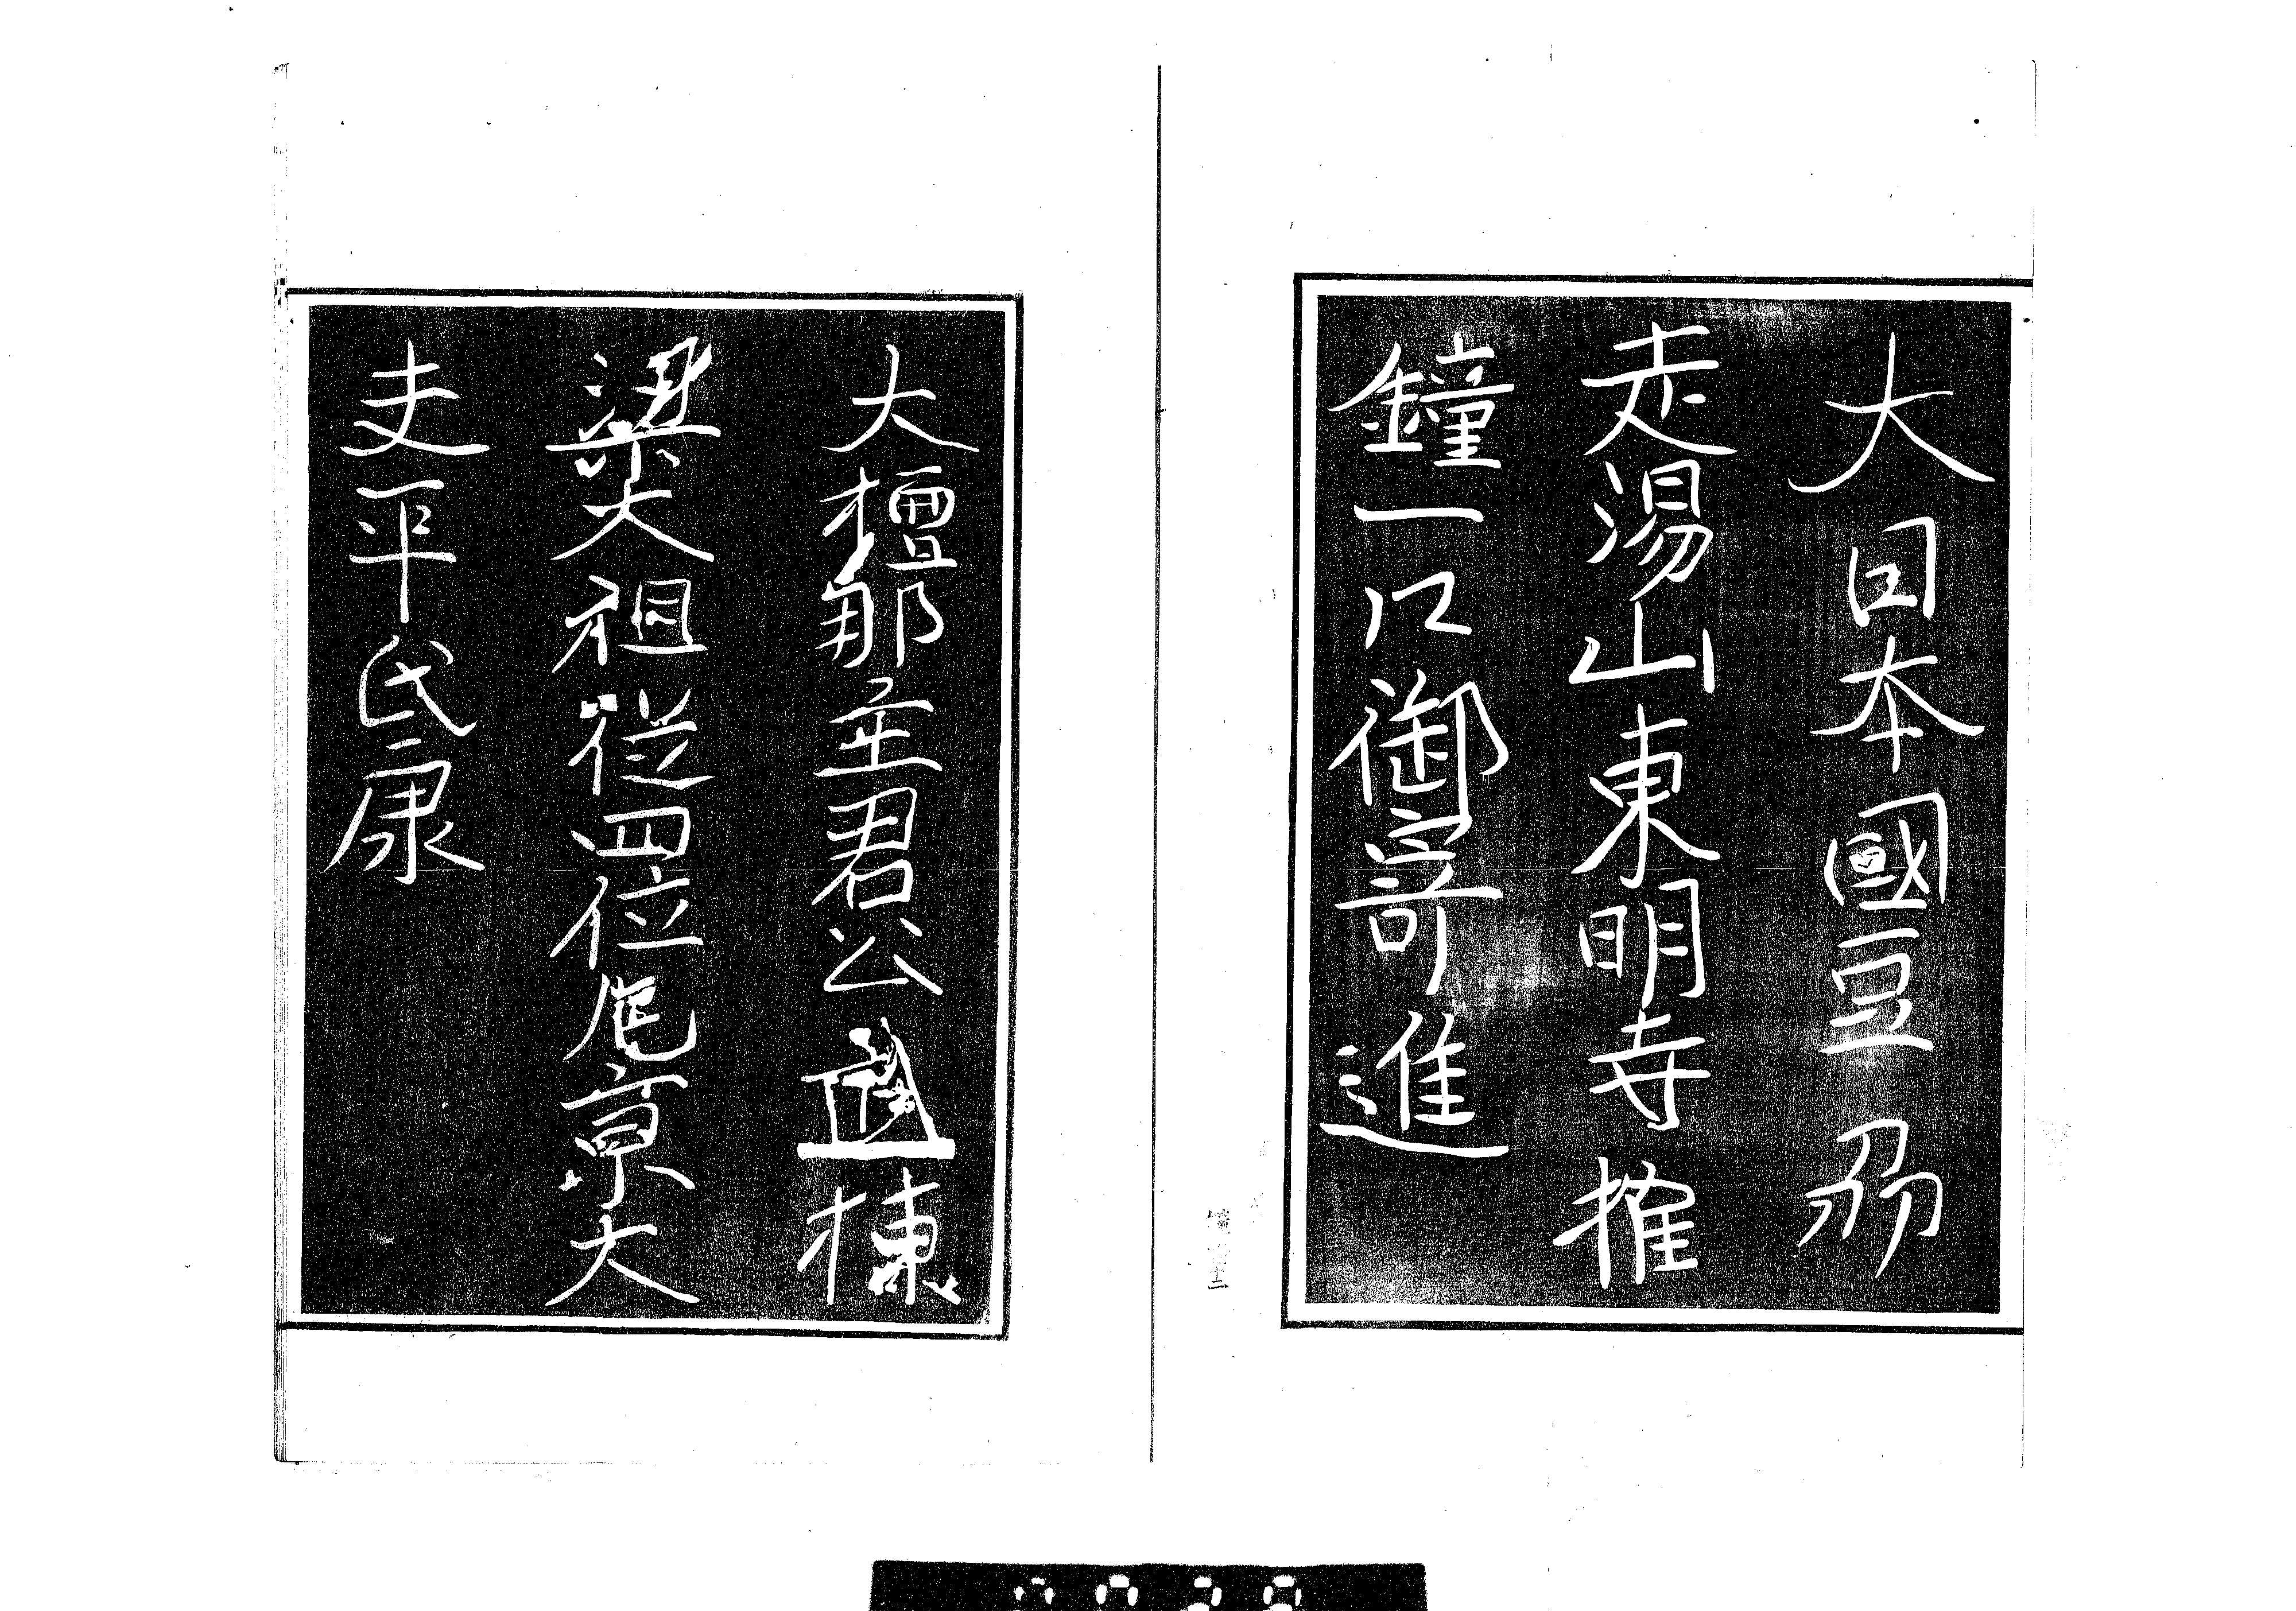 大日本國豆州
走湯山東明寺推
鐘一口御寄進
大檀那主君公武棟
梁太祖從四位左京大
夫平氏康